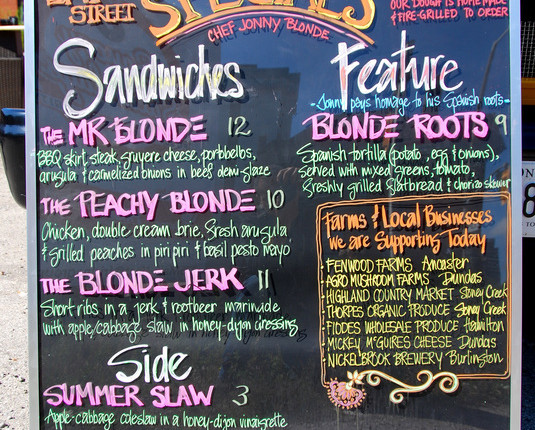 STREET
SPECIALS
CHEF JONNY BLONDE
OUR DOUGH IS HOMEMADE
& FIRE-GRILLED TO ORDER
Sandwiches
THE MR BLONDE 12
BBQ skirt steak, gruyere cheese, portobellos,
arugula & carmelized onions in beef demi-glaze
THE PEACHY BLONDE 10
Chicken, double cream brie, fresh arugula
& grilled peaches in piri piri & basil pesto mayo
THE BLONDE JERK 11
Short ribs in a jerk & rootbeer marinade
with apple/cabbage slaw in honey-dijon dressing
Side
SUMMER SLAW 3
Apple-cabbage coleslaw in a honey-dijon vinaigrette
Feature
-Jonny pays homage to his Spanish roots-
BLONDE ROOTS 9
Spanish tortilla (potato, egg & onions),
served with mixed greens, tomato,
freshly grilled flatbread & chorizo skewer
Farms & Local Businesses
we are Supporting Today
FENWOOD FARMS Ancaster
AGRO MUSHROOM FARMS Dundas
HIGHLAND COUNTRY MARKET Stoney Creek
THORPES ORGANIC PRODUCE Stoney Creek
FIDDES WHOLESALE PRODUCE Hamilton
MICKEY MCGUIRES CHEESE Dundas
NICKEL BROOK BREWERY Burlington